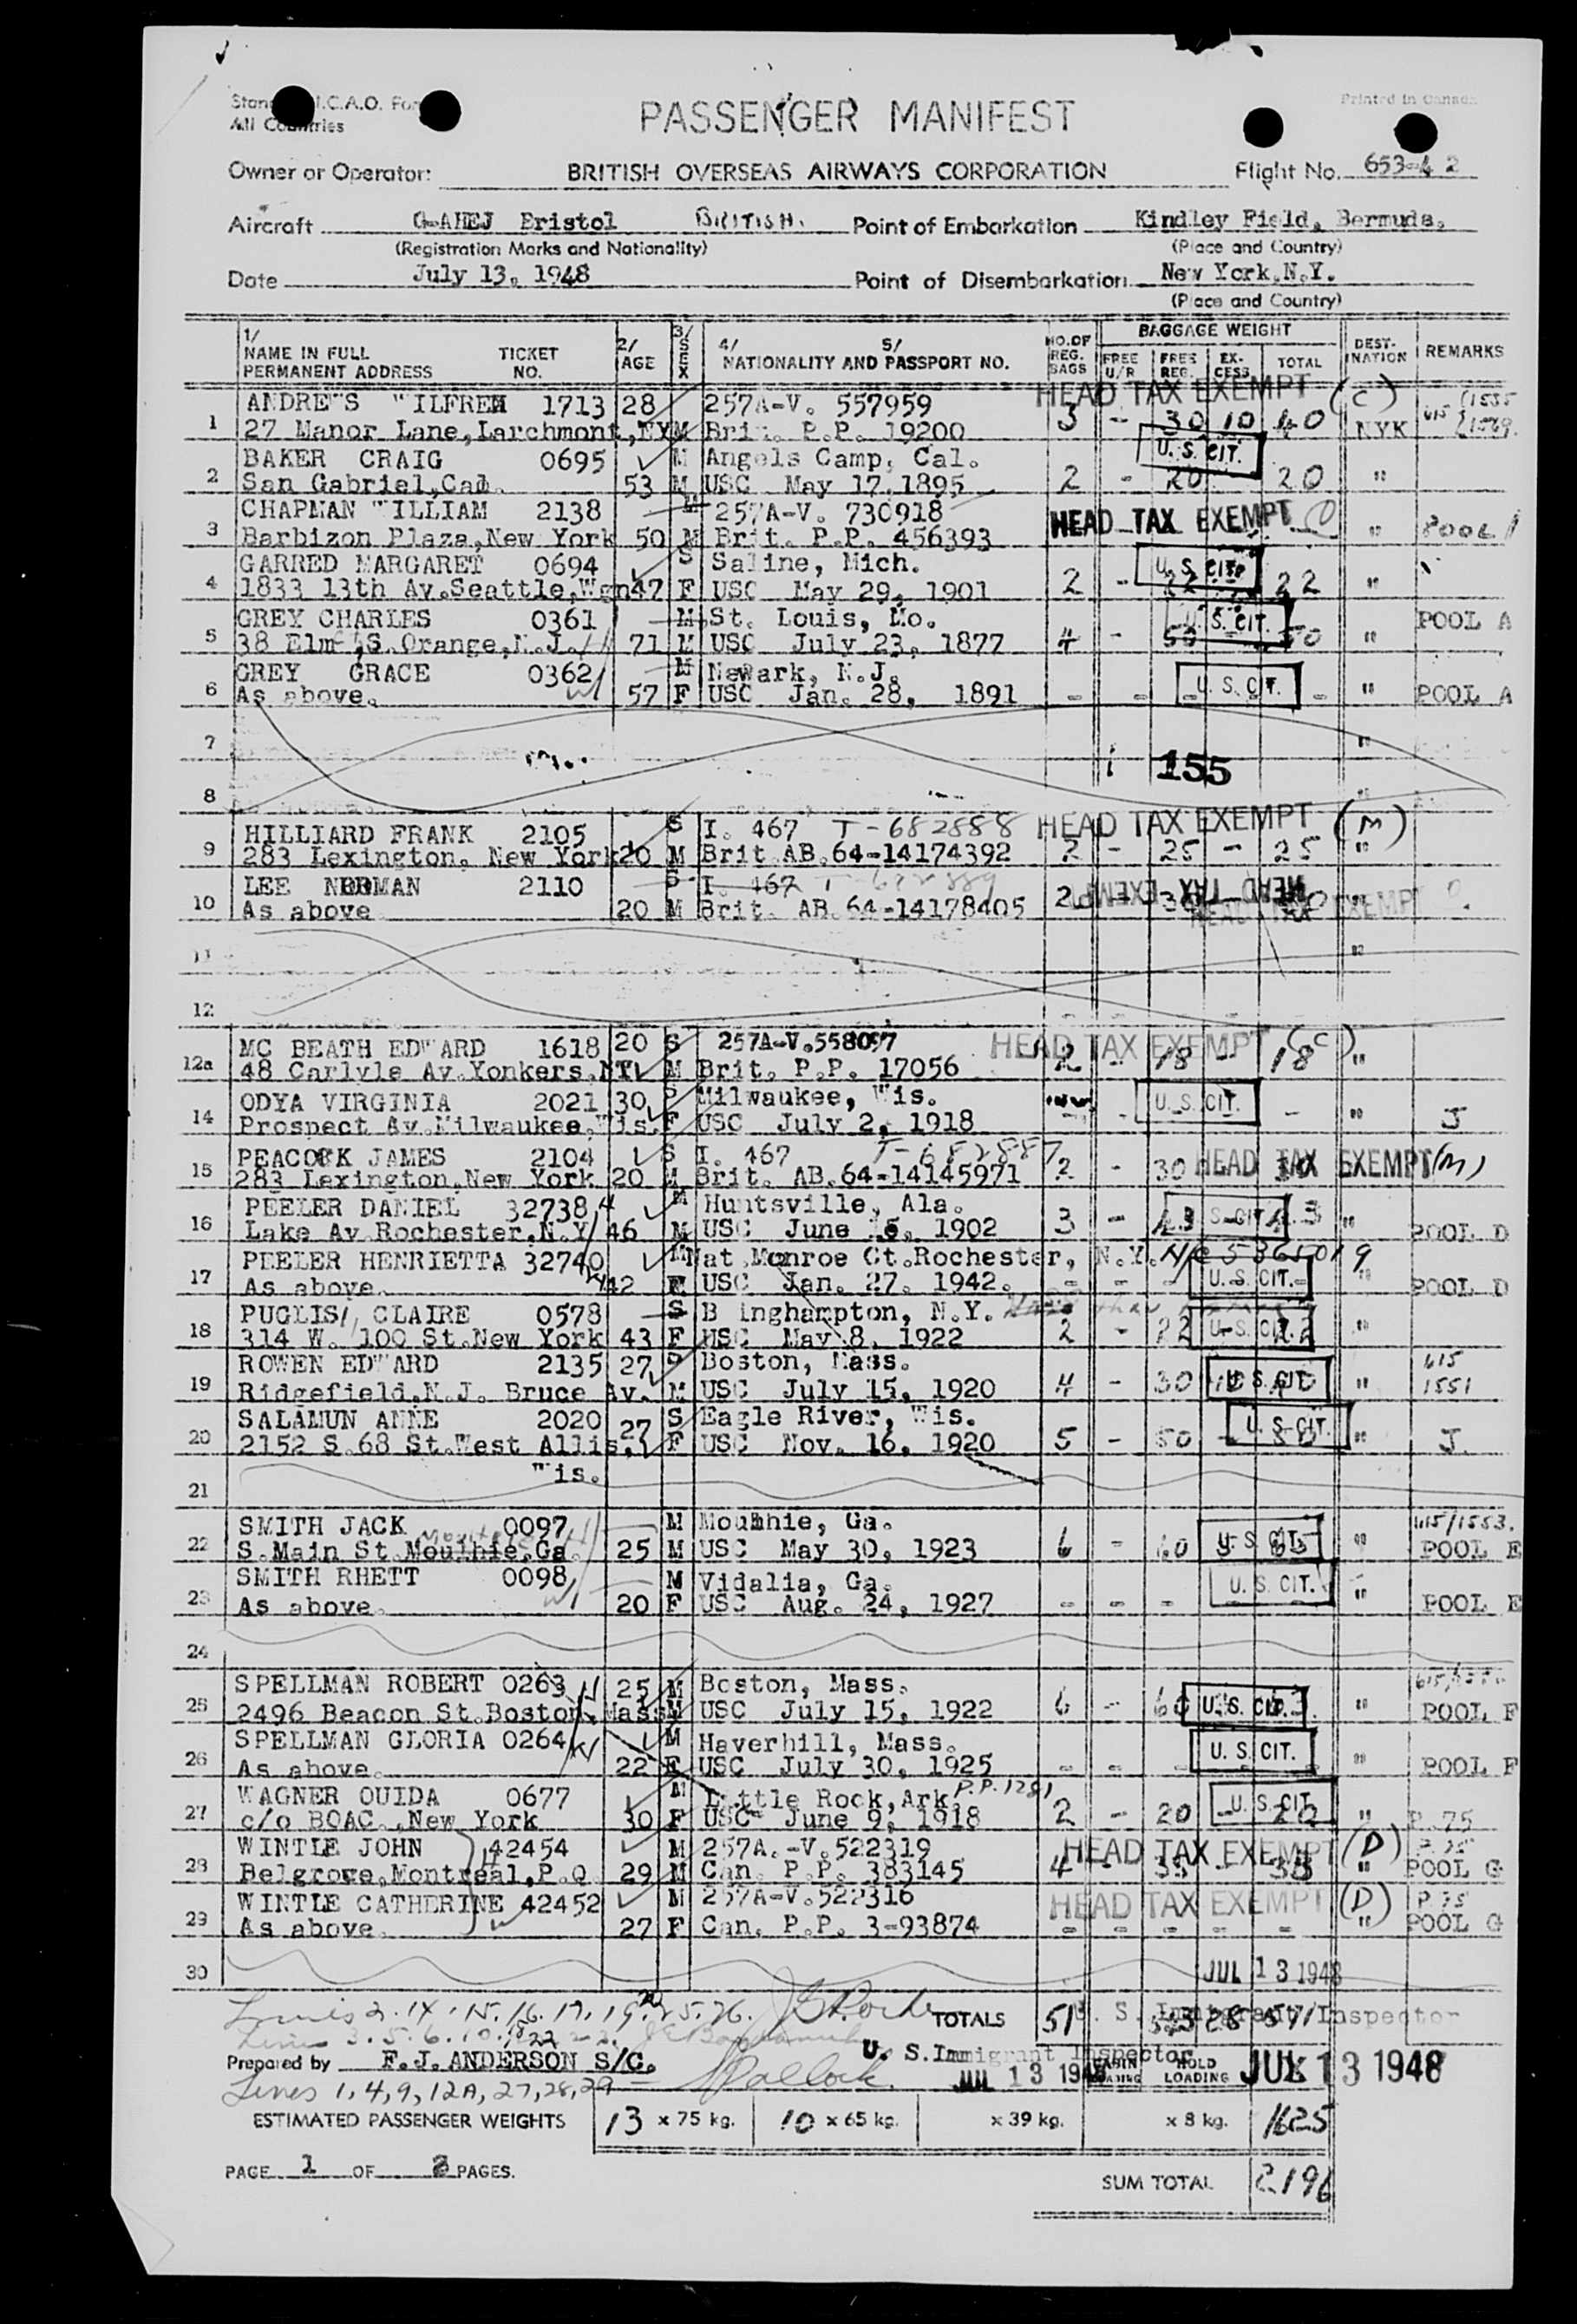 Printed in Canada
All Countries
PASSENGER MANIFEST
Owner or Operator: BRITISH OVERSEAS AIRWAYS CORPORATION Flight No. 653-42
Aircraft G-AHEJ Bristol BRITISH. Point of Embarkation Kindley Field, Bermuda.
(Registration Marks and Nationality) (Place and Country)
Date July 13, 1948 Point of Disembarkation New York,N.Y.
(Place and Country)
1/ NAME IN FULL PERMANENT ADDRESS TICKET NO. 2/ AGE 3/ SEX 4/ 5/ NATIONALITY AND PASSPORT NO. NO.OF REG. BAGS BAGGAGE WEIGHT FREE U/R FREE REG. EX-CESS TOTAL DEST-INATION REMARKS
ANDREWS WILFRED 1713 28 257A-V. 557959 HEAD TAX EXEMPT (C)
1 27 Manor Lane,Larchmont,NY M Brit. P.P. 19200 3 - 30 10 40 NYK
BAKER CRAIG 0695 M Angels Camp, Cal. U. S. CIT.
2 San Gabriel,Cal. 53 M USC May 17.1895 2 - 20 20 "
CHAPMAN WILLIAM 2138 M 257A-V. 730918 HEAD TAX EXEMPT
3 Barbizon Plaza,New York 50 M Brit. P.P. 456393 "
GARRED MARGARET 0694 S Saline, Mich. U. S. CIT.
4 1833 13th Av.Seattle,Wgn 47 F USC May 29, 1901 2 - 22 22 "
GREY CHARLES 0361 M St. Louis, Mo. U. S. CIT. POOL A
5 38 Elm St,S.Orange,N.J. 71 M USC July 23, 1877 4 - 50 50 "
GREY GRACE 0362 M Newark, N.J. U. S. CIT.
6 As above. 57 F USC Jan. 28, 1891 - - - - " POOL A
7 "
155
8 "
HILLIARD FRANK 2105 S I. 467 T-682888 HEAD TAX EXEMPT (M)
9 283 Lexington, New York 20 M Brit.AB.64-14174392 2 - 25 - 25 "
LEE NORMAN 2110 S I. 467 HEAD TAX EXEMPT
10 As above 20 M Brit. AB.64-14178405 2 HEAD TAX EXEMPT
11 "
12
MC BEATH EDWARD 1618 20 S 257A-V.558097 HEAD TAX EXEMPT (C)
12a 48 Carlyle Av.Yonkers,NY M Brit. P.P. 17056 2 - 18 - 18 "
ODYA VIRGINIA 2021 30 S Milwaukee, Wis. U. S. CIT.
14 Prospect Av.Milwaukee,Wis. F USC July 2, 1918 - - " J
PEACOCK JAMES 2104 S I. 467 T-682887
15 283 Lexington,New York 20 M Brit. AB.64-14145971 2 - 30 HEAD TAX EXEMPT (M)
PEELER DANIEL 32738 M Huntsville, Ala. U. S. CIT.
16 Lake Av.Rochester,N.Y. 46 M USC June 15, 1902 3 - 43 43 " POOL D
PEELER HENRIETTA 32740 M Nat.Monroe Ct.Rochester, N.Y. N/C 5365019
17 As above 42 F USC Jan. 27. 1942. - - - U. S. CIT. " POOL D
PUGLISI, CLAIRE 0578 S Binghampton, N.Y.
18 314 W. 100 St.New York 43 F USC May 8, 1922 2 - 22 U. S. CIT. 22 "
ROWEN EDWARD 2135 27 S Boston, Mass. 615
19 Ridgefield,N.J. Bruce Av. M USC July 15, 1920 4 - 30 10 40 U. S. CIT. " 1551
SALAMUN ANNE 2020 27 S Eagle River, Wis. U. S. CIT.
20 2152 S.68 St.West Allis, F USC Nov. 16, 1920 5 - 50 - 50 " J
Wis.
21
SMITH JACK 0097 M Moulthie, Ga. 615/1553.
22 S.Main St.Moulthie,Ga. 25 M USC May 30, 1923 6 - 60 U. S. CIT. " POOL E
SMITH RHETT 0098 M Vidalia, Ga. U. S. CIT.
23 As above. 20 F USC Aug. 24, 1927 - - - " POOL E
24
SPELLMAN ROBERT 0263 25 M Boston, Mass.
25 2496 Beacon St.Boston,Mass M USC July 15, 1922 6 - 60 U. S. CIT. " POOL F
SPELLMAN GLORIA 0264 M Haverhill, Mass. U. S. CIT.
26 As above. 22 F USC July 30, 1925 - - - - - " POOL F
WAGNER OUIDA 0677 M Little Rock,Ark. P.P.1281 U. S. CIT.
27 c/o BOAC.,New York 30 F USC June 9, 1918 2 - 20 - 20 " P.75
WINTLE JOHN 42454 M 257A.-V.522319 HEAD TAX EXEMPT (D) P.75
28 Belgrove,Montreal,P.Q. 29 M Can. P.P. 383145 4 - 33 - 33 " POOL G
WINTLE CATHERINE 42452 M 257A-V.522316 HEAD TAX EXEMPT (D) P.75
29 As above. 27 F Can. P.P. 3-93874 - - - - - " POOL G
30 JUL 13 1948
Lines 2.14.15.16.17.19.20.25.26. TOTALS 51 543 28 571 U. S. Immigrant Inspector
Prepared by F.J.ANDERSON S/C. U. S. Immigrant Inspector
JUL 13 1948 CABIN LOADING HOLD LOADING JUL 13 1948
Lines 1,4,9,12A,27,28,29
ESTIMATED PASSENGER WEIGHTS 13 x 75 kg. 10 x 65 kg. x 39 kg. x 8 kg. 1625
PAGE 1 OF 2 PAGES.
SUM TOTAL 2196